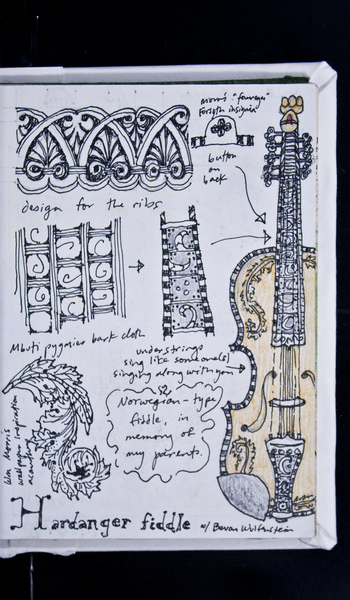 Mom's "
Forsyth insignia
button
on
back
design for the ribs
Mbuti pygmies bark cloth
understrings
sing like someone(s)
singing along with you
Norwegian-type
fiddle, in
memory of
my parents.
Wm Morris
wallpaper inspiration
acanthus
Hardanger fiddle